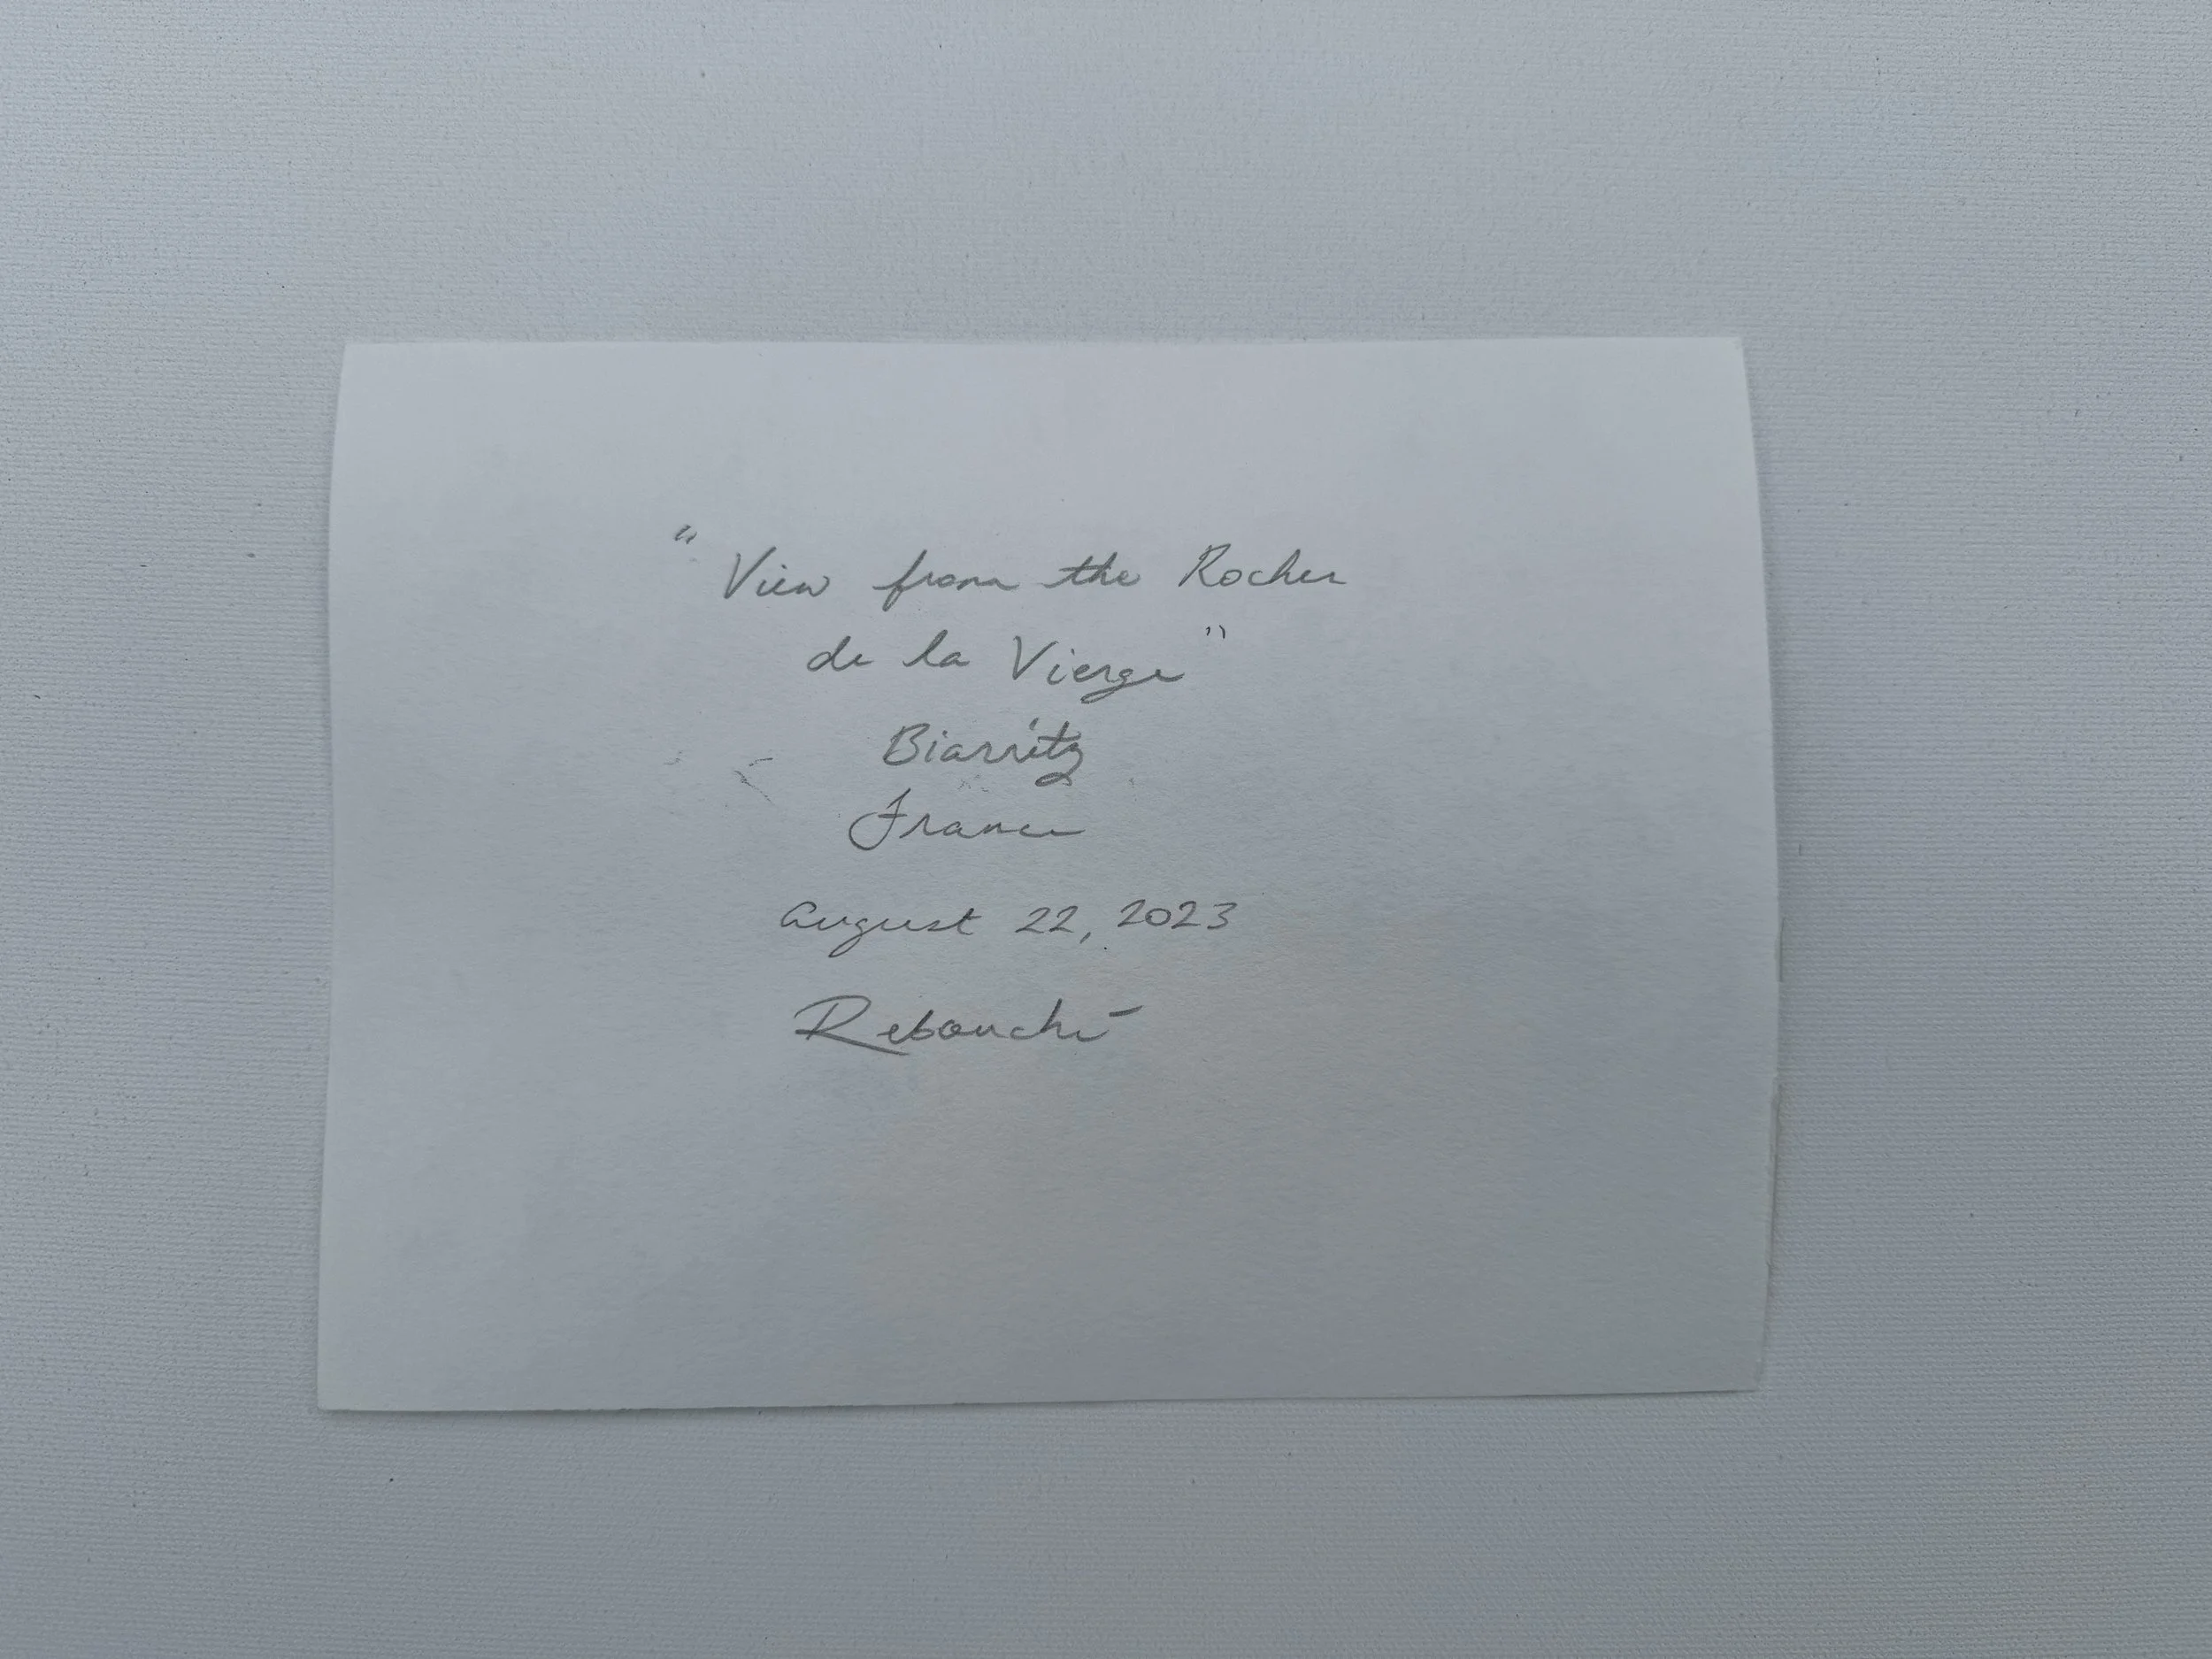 "View from the Rocher
de la Vierge"
Biarritz
France
August 22, 2023
Rebouché